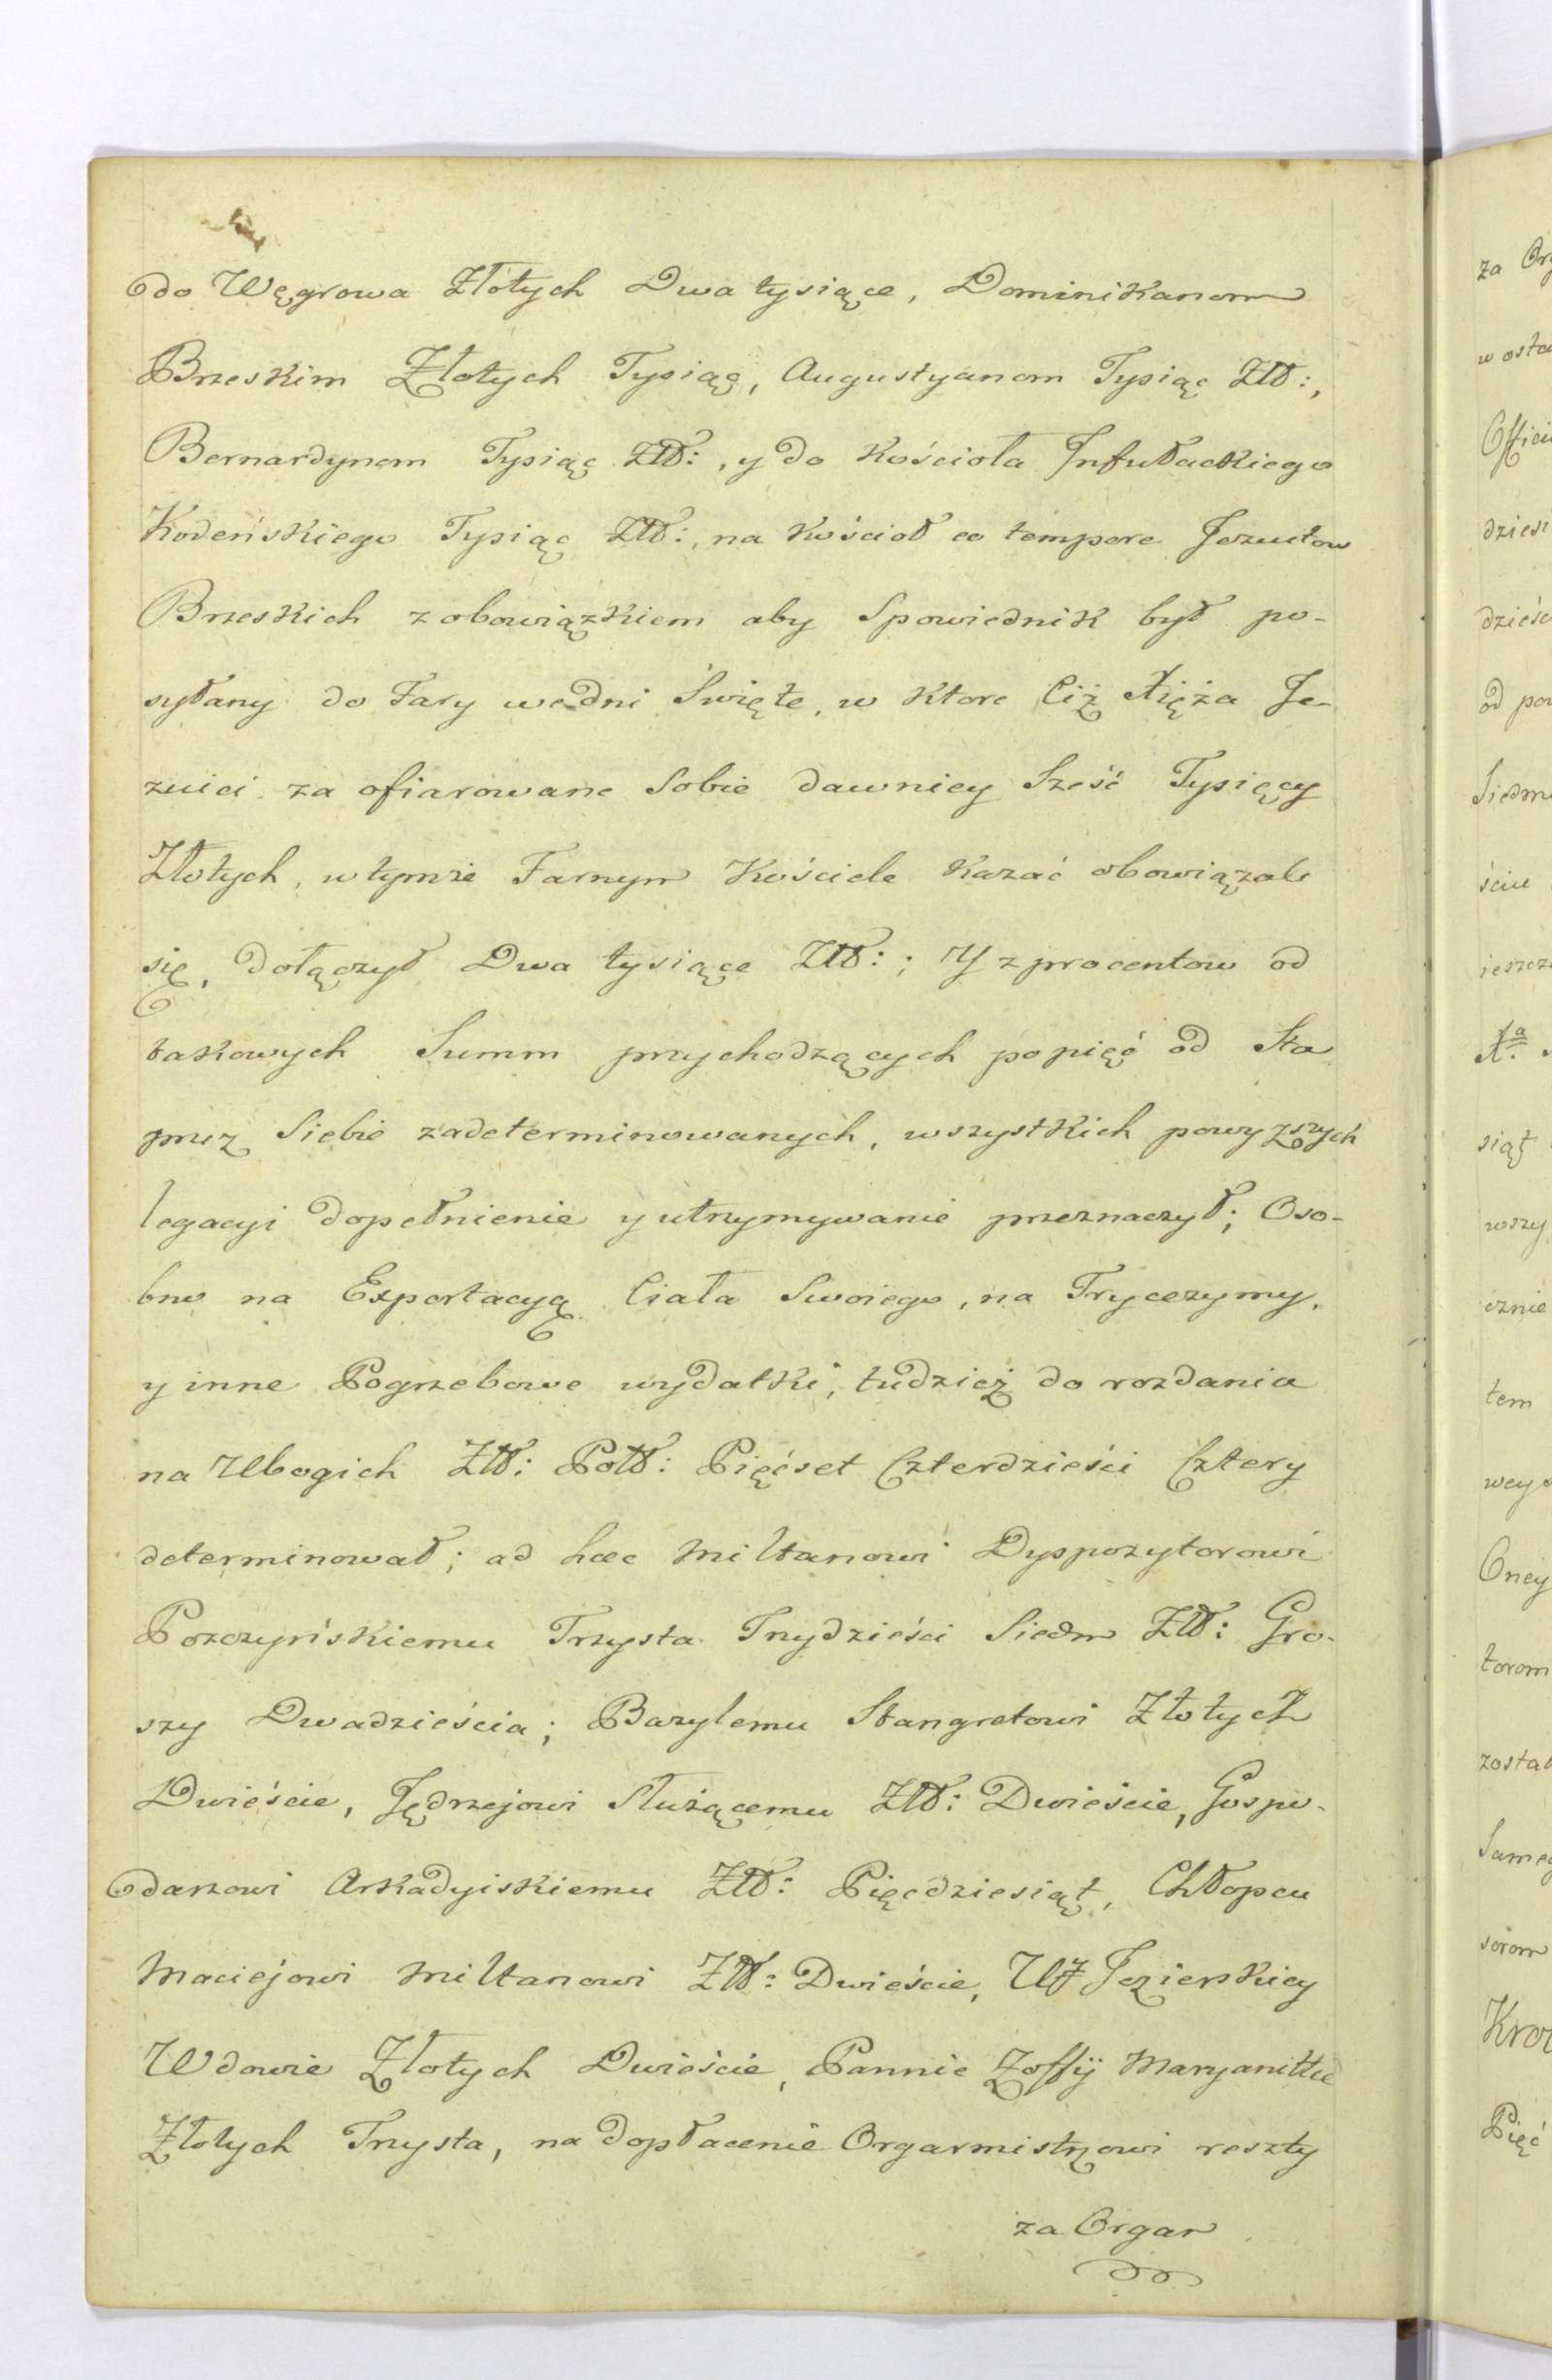 do Węgrowa Złotych Dwa tysiące, Dominikanom
Brzeskim Złotych Tysiąc, Augustyanom Tysiąc Złł:,
Bernardynom Tysiąc Złł:, y do Kościoła Infułackiego
Kodeńskiego Tysiąc Złł:, na Kościoł eo tempore Jezuitow
Brzeskich z obowiązkiem aby Spowiednik był po-
syłany do Fary we dni Święte, w ktore Ciż Xięża Je-
zuici za ofiarowane Sobie dawniey Sześć Tysięcy
Złotych, w tymże Farnym Kościele Kazać obowiązali
się, dołączył Dwa tysiące Złł:; Y z procentow od
takowych Summ przychodzących po pięć od Sta
przez Siebie zadeterminowanych, wszystkich powyższych
legacyi dopełnienie y utrzymywanie przeznaczył; Oso-
bno na Exportacyą Ciała Swoiego, na Trycezymy,
y inne Pogrzebowe wydatki, tudzież do rozdania
na Ubogich Złł: Polł: Pięćset Czterdzieści Cztery
determinował; ad hæc Miltanowi Dyspozytorowi
Poszczyńskiemu Trzysta Trzydzieści Siedm Złł: Gro-
szy Dwadzieścia; Bazylemu Stangretowi Złotych
Dwieście, Jędrzejowi Służącemu Złł: Dwieście, Gospo-
darzowi Arkadyiskiemu Złł: Pięcdziesiąt, Chłopcu
Maciejowi Miltanowi Złł: Dwieście, WJ Jezierskiey
Wdowie Złotych Dwieście, Pannie Zoffij Maryanitce
Złotych Trzysta, na dopłacenie Organmistrzowi reszty
za Organ
za
w osta
Offici
dziesi
dzieśc
od pow
Siedm
ściu
ieszcz
siąt
wszy
cznie
tem
wey
Oney
torom
został
Same
sorom
Kro
Pięć